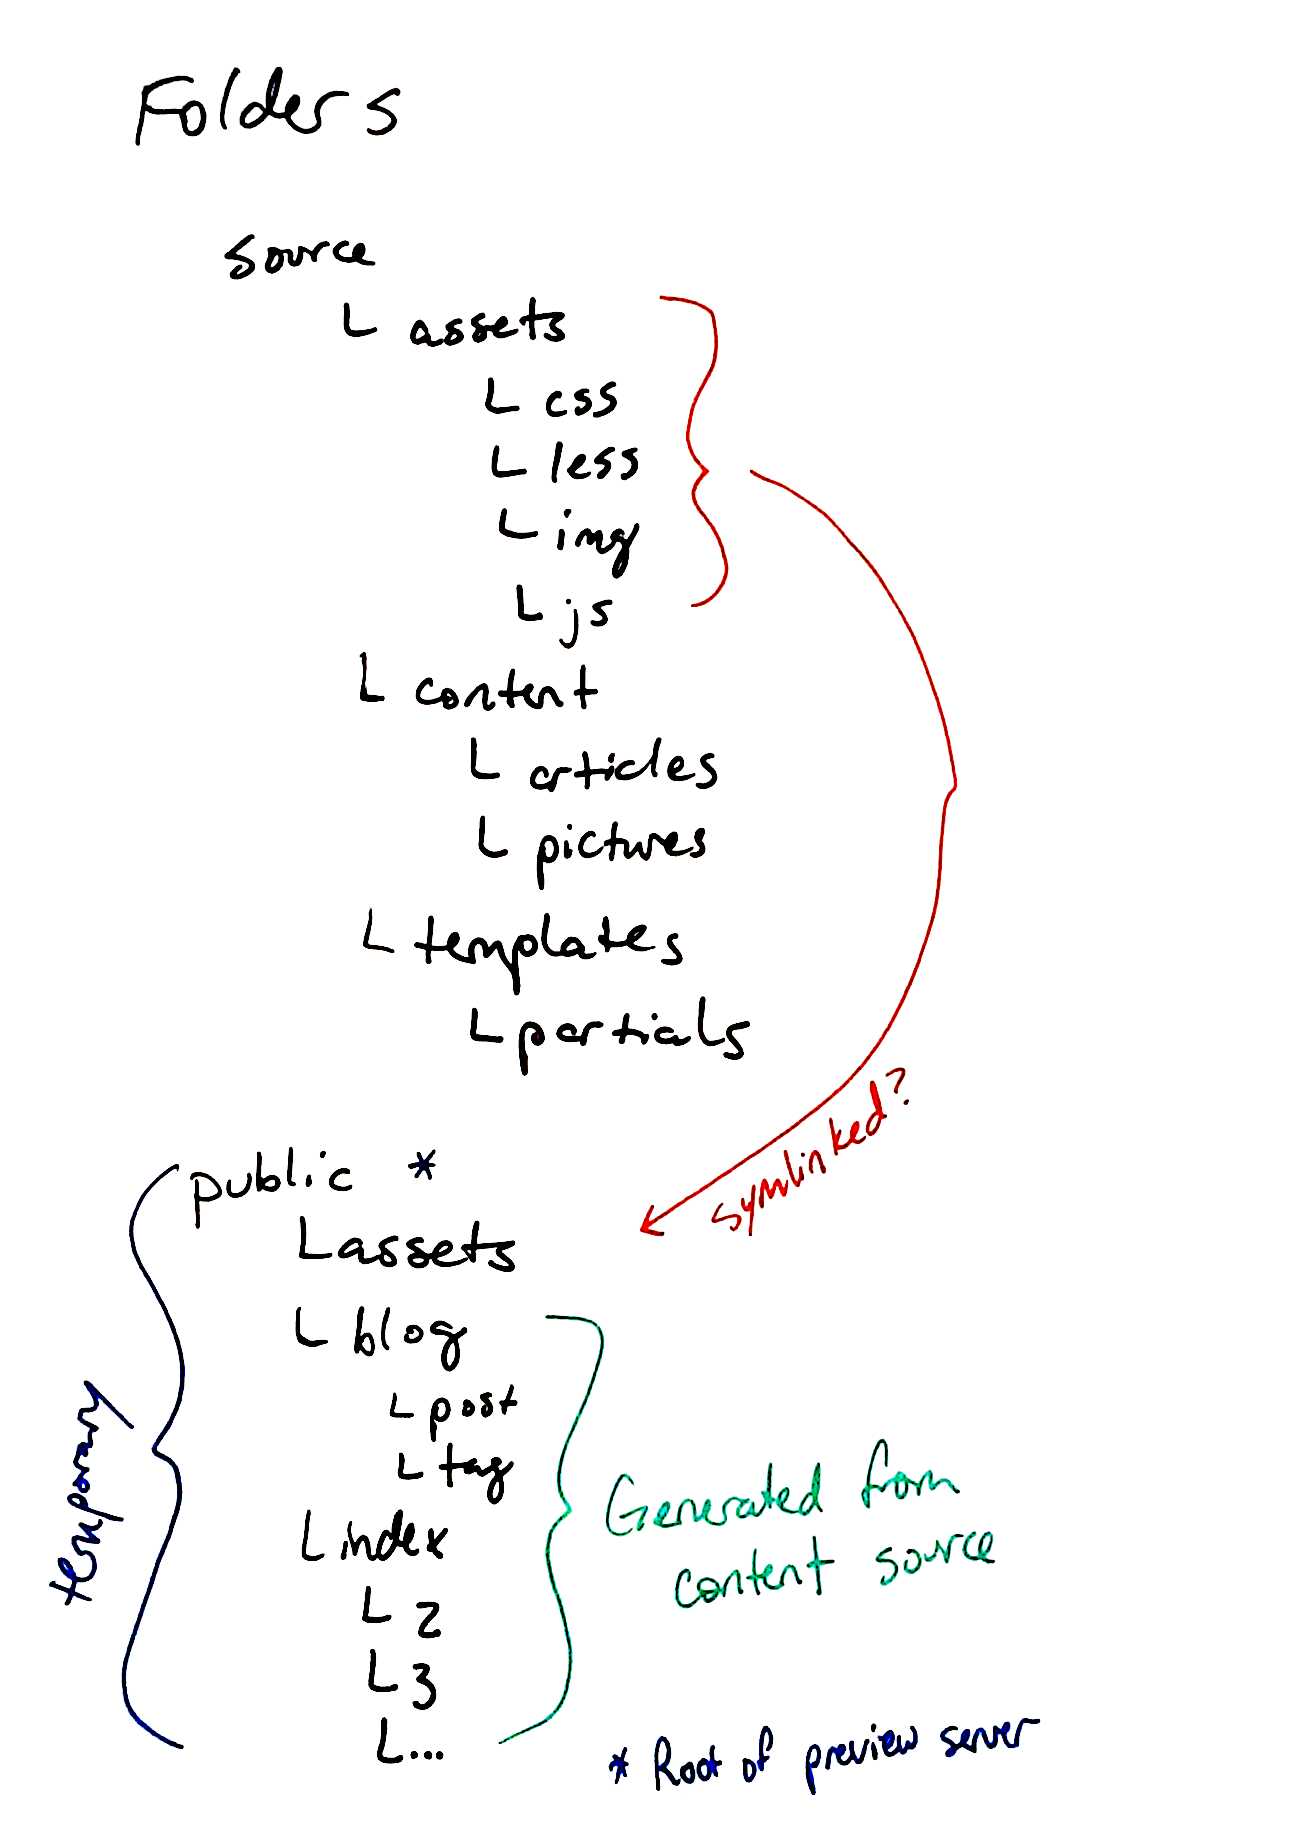 Folders
source
L assets
L css
L less
L img
L js
L content
L articles
L pictures
L templates
L partials
symlinked?
public *
L assets
L blog
L post
L tag
L index
L 2
L 3
L ...
temporary
Generated from
content source
* Root of preview server